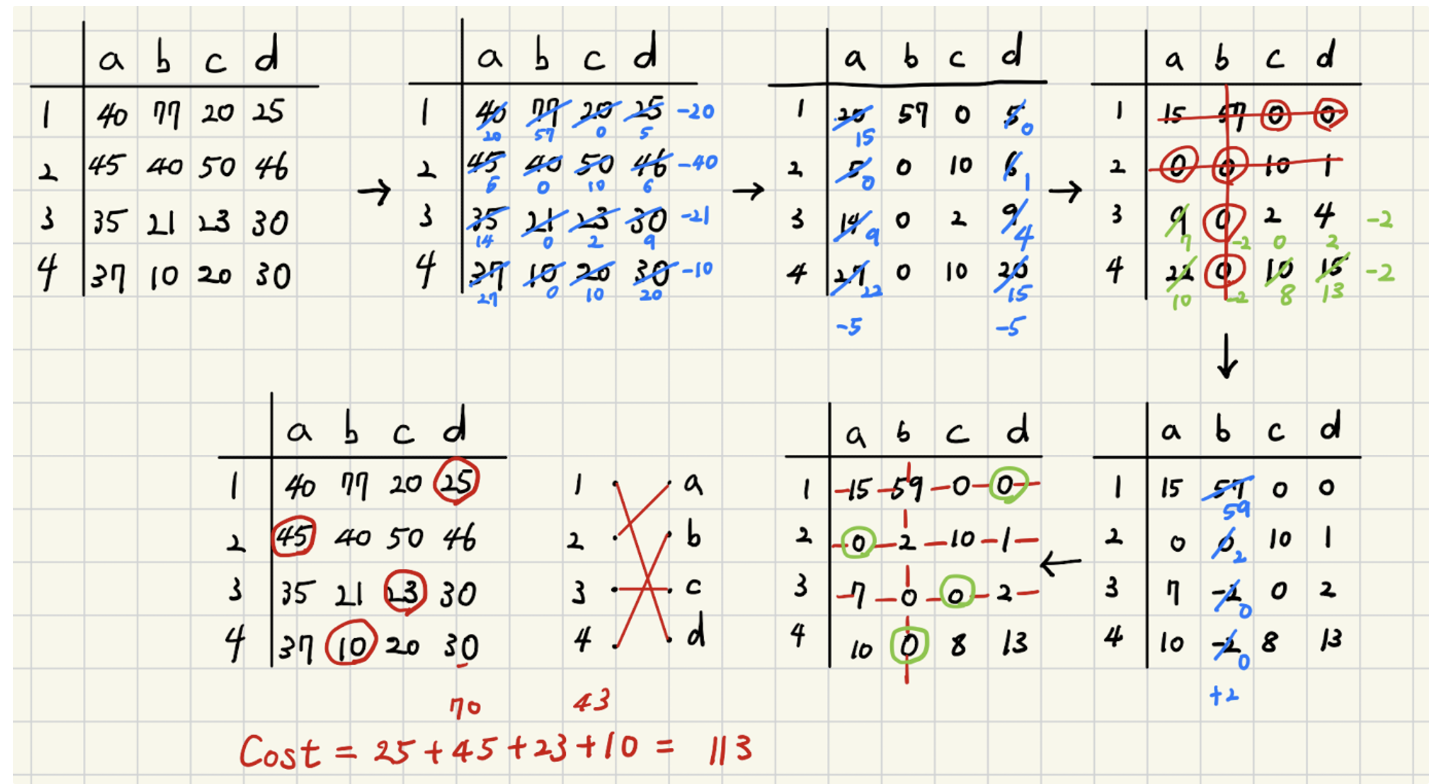 a b c d
1 40 77 20 25
2 45 40 50 46
3 35 21 23 30
4 37 10 20 30
a b c d
1 40 77 20 25 -20
20 57 0 5
2 45 40 50 46 -40
5 0 10 6
3 35 21 23 30 -21
14 0 2 9
4 37 10 20 30 -10
27 0 10 20
a b c d
1 20 57 0 5
15 0
2 5 0 10 6
0 1
3 14 0 2 9
9 4
4 27 0 10 20
22 15
-5 -5
a b c d
1 15 57 0 0
2 0 0 10 1
3 9 0 2 4 -2
7 -2 0 2
4 22 0 10 15 -2
10 -2 8 13
a b c d
1 15 57 0 0
59
2 0 0 10 1
2
3 7 -2 0 2
0
4 10 -2 8 13
0
+2
a b c d
1 15 59 0 0
2 0 2 10 1
3 7 0 0 2
4 10 0 8 13
a b c d
1 40 77 20 25
2 45 40 50 46
3 35 21 23 30
4 37 10 20 30
1 a
2 b
3 c
4 d
70 43
Cost = 25 + 45 + 23 + 10 = 113